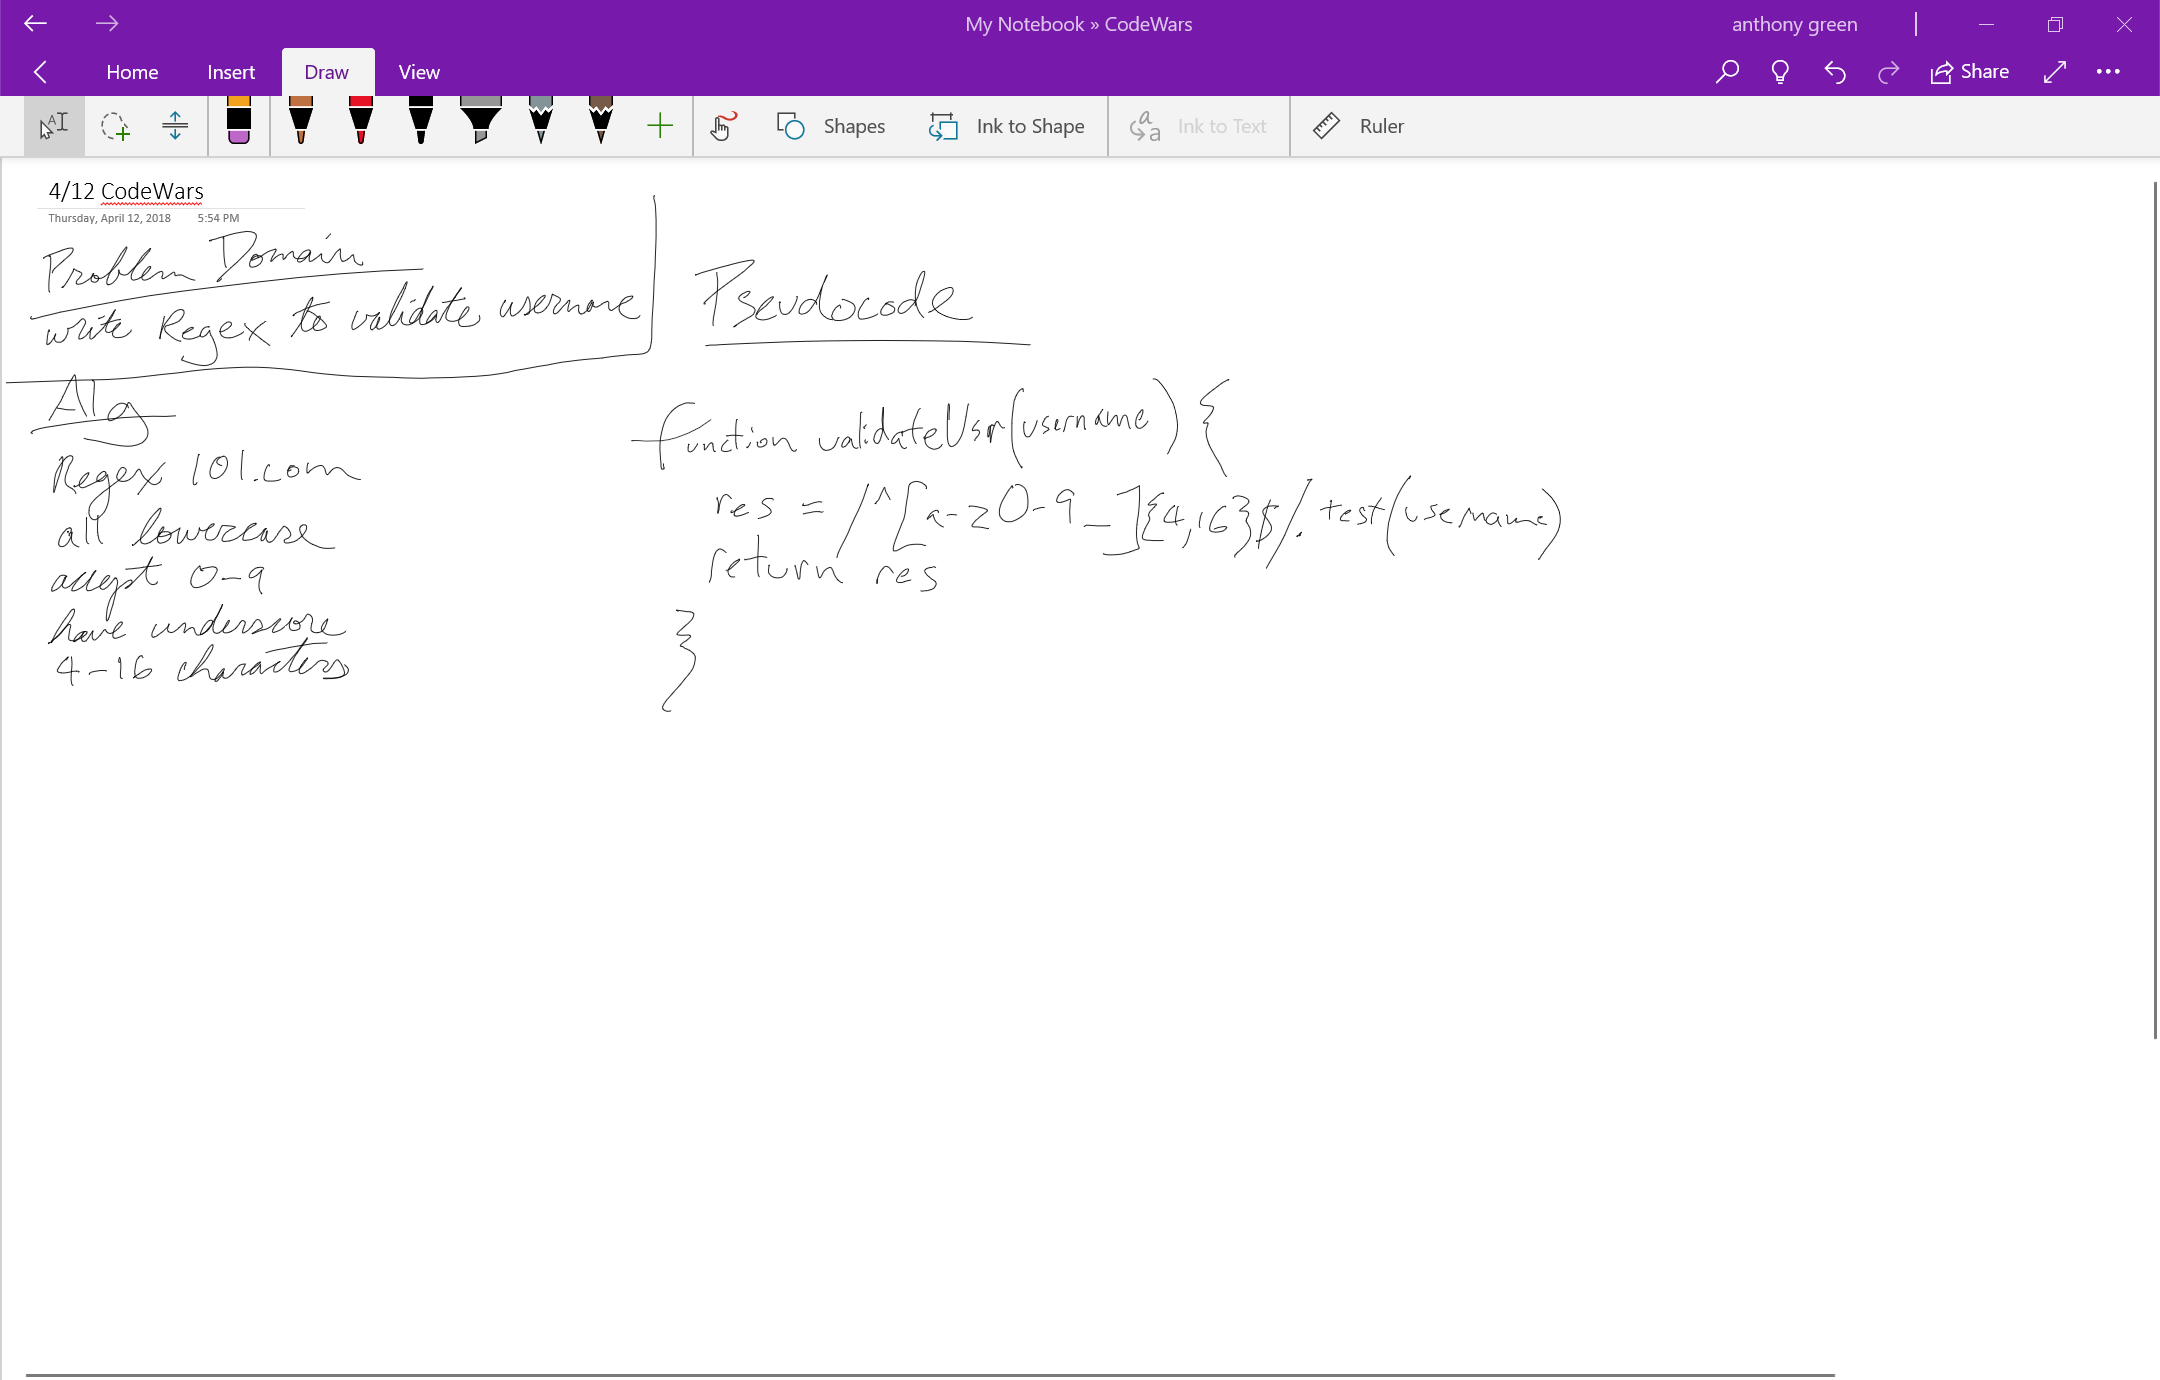 My Notebook » CodeWars
anthony green
Home Insert Draw View
Share
Shapes
Ink to Shape
Ink to Text
Ruler
4/12 CodeWars
Thursday, April 12, 2018 5:54 PM
Problem Domain
write Regex to validate username
Alg
Regex 101.com
all lowercase
accept 0-9
have underscore
4-16 characters
Pseudocode
function validateUsr(username) {
res = /^[a-z0-9_]{4,16}$/.test(username)
return res
}